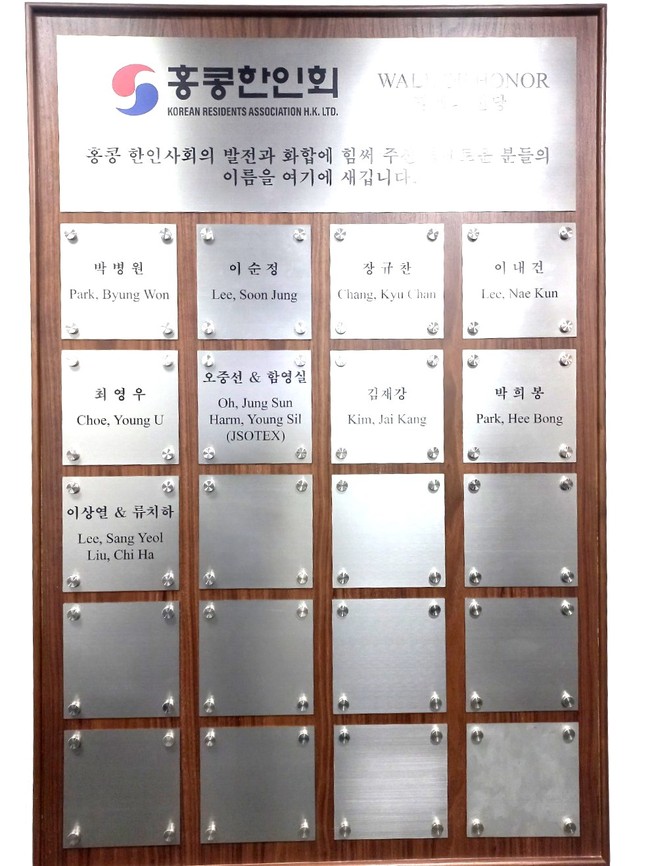 홍콩한인회
KOREAN RESIDENTS ASSOCIATION H.K. LTD.
HONOR
홍콩 한인사회의 발전과 화합에 힘써 주신 분들의
이름을 여기에 새깁니다.
박병원
Park, Byung Won
이순정
Lee, Soon Jung
장규찬
Chang, Kyu Chan
이내건
Lee, Nae Kun
최영우
Choe, Young U
오중선 & 함영실
Oh, Jung Sun
Harm, Young Sil
(JSOTEX)
김재강
Kim, Jai Kang
박희봉
Park, Hee Bong
이상열 & 류치하
Lee, Sang Yeol
Liu, Chi Ha